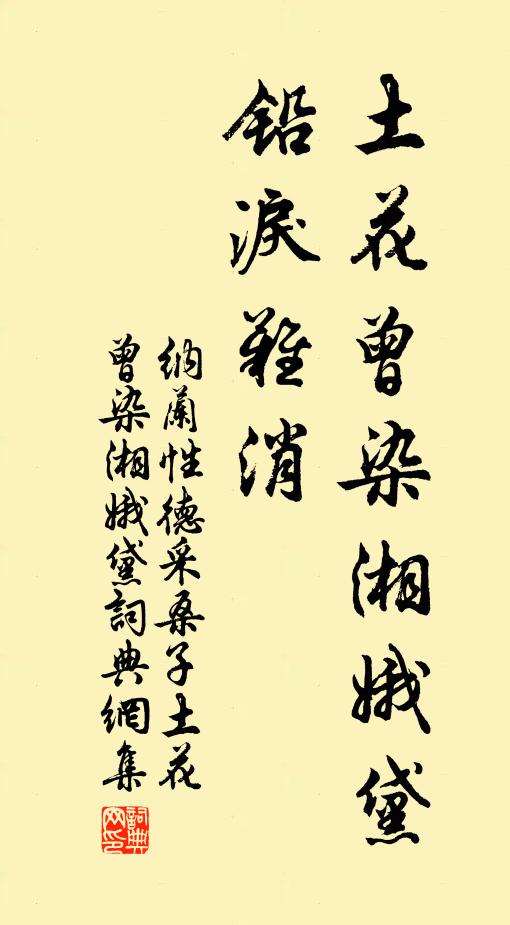 土花曾染湘娥黛
鉛淚難消
納蘭性德采桑子土花
曾染湘娥黛詞典網集
詞典網印